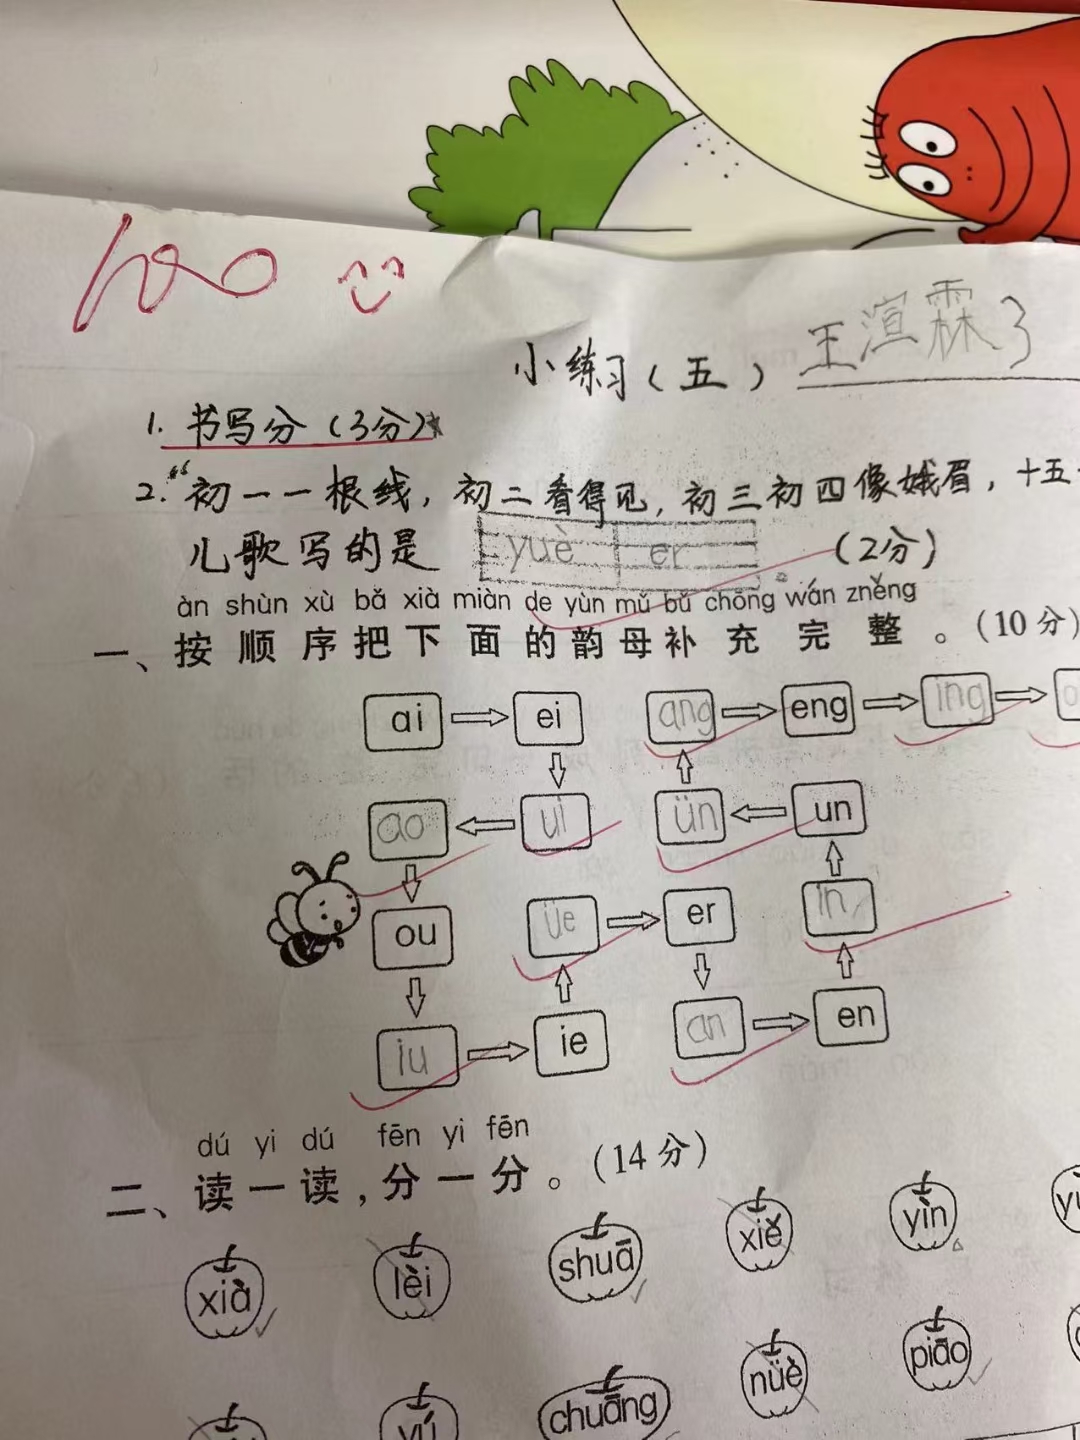 100
小练习（五） 王渲霖3
1. 书写分（3分）
2.“初一一根线，初二看得见，初三初四像娥眉，十五
儿歌写的是 yuè er 。（2分）
àn shùn xù bǎ xià miàn de yùn mǔ bǔ chōng wán zhěng
一、按顺序把下面的韵母补充完整。（10分）
ai ei ang eng ing
ao ui ün un
ou üe er in
iu ie an en
dú yi dú fēn yi fēn
二、读一读，分一分。（14分）
xià lèi shuā xiě yìn
yú chuāng nüè piāo